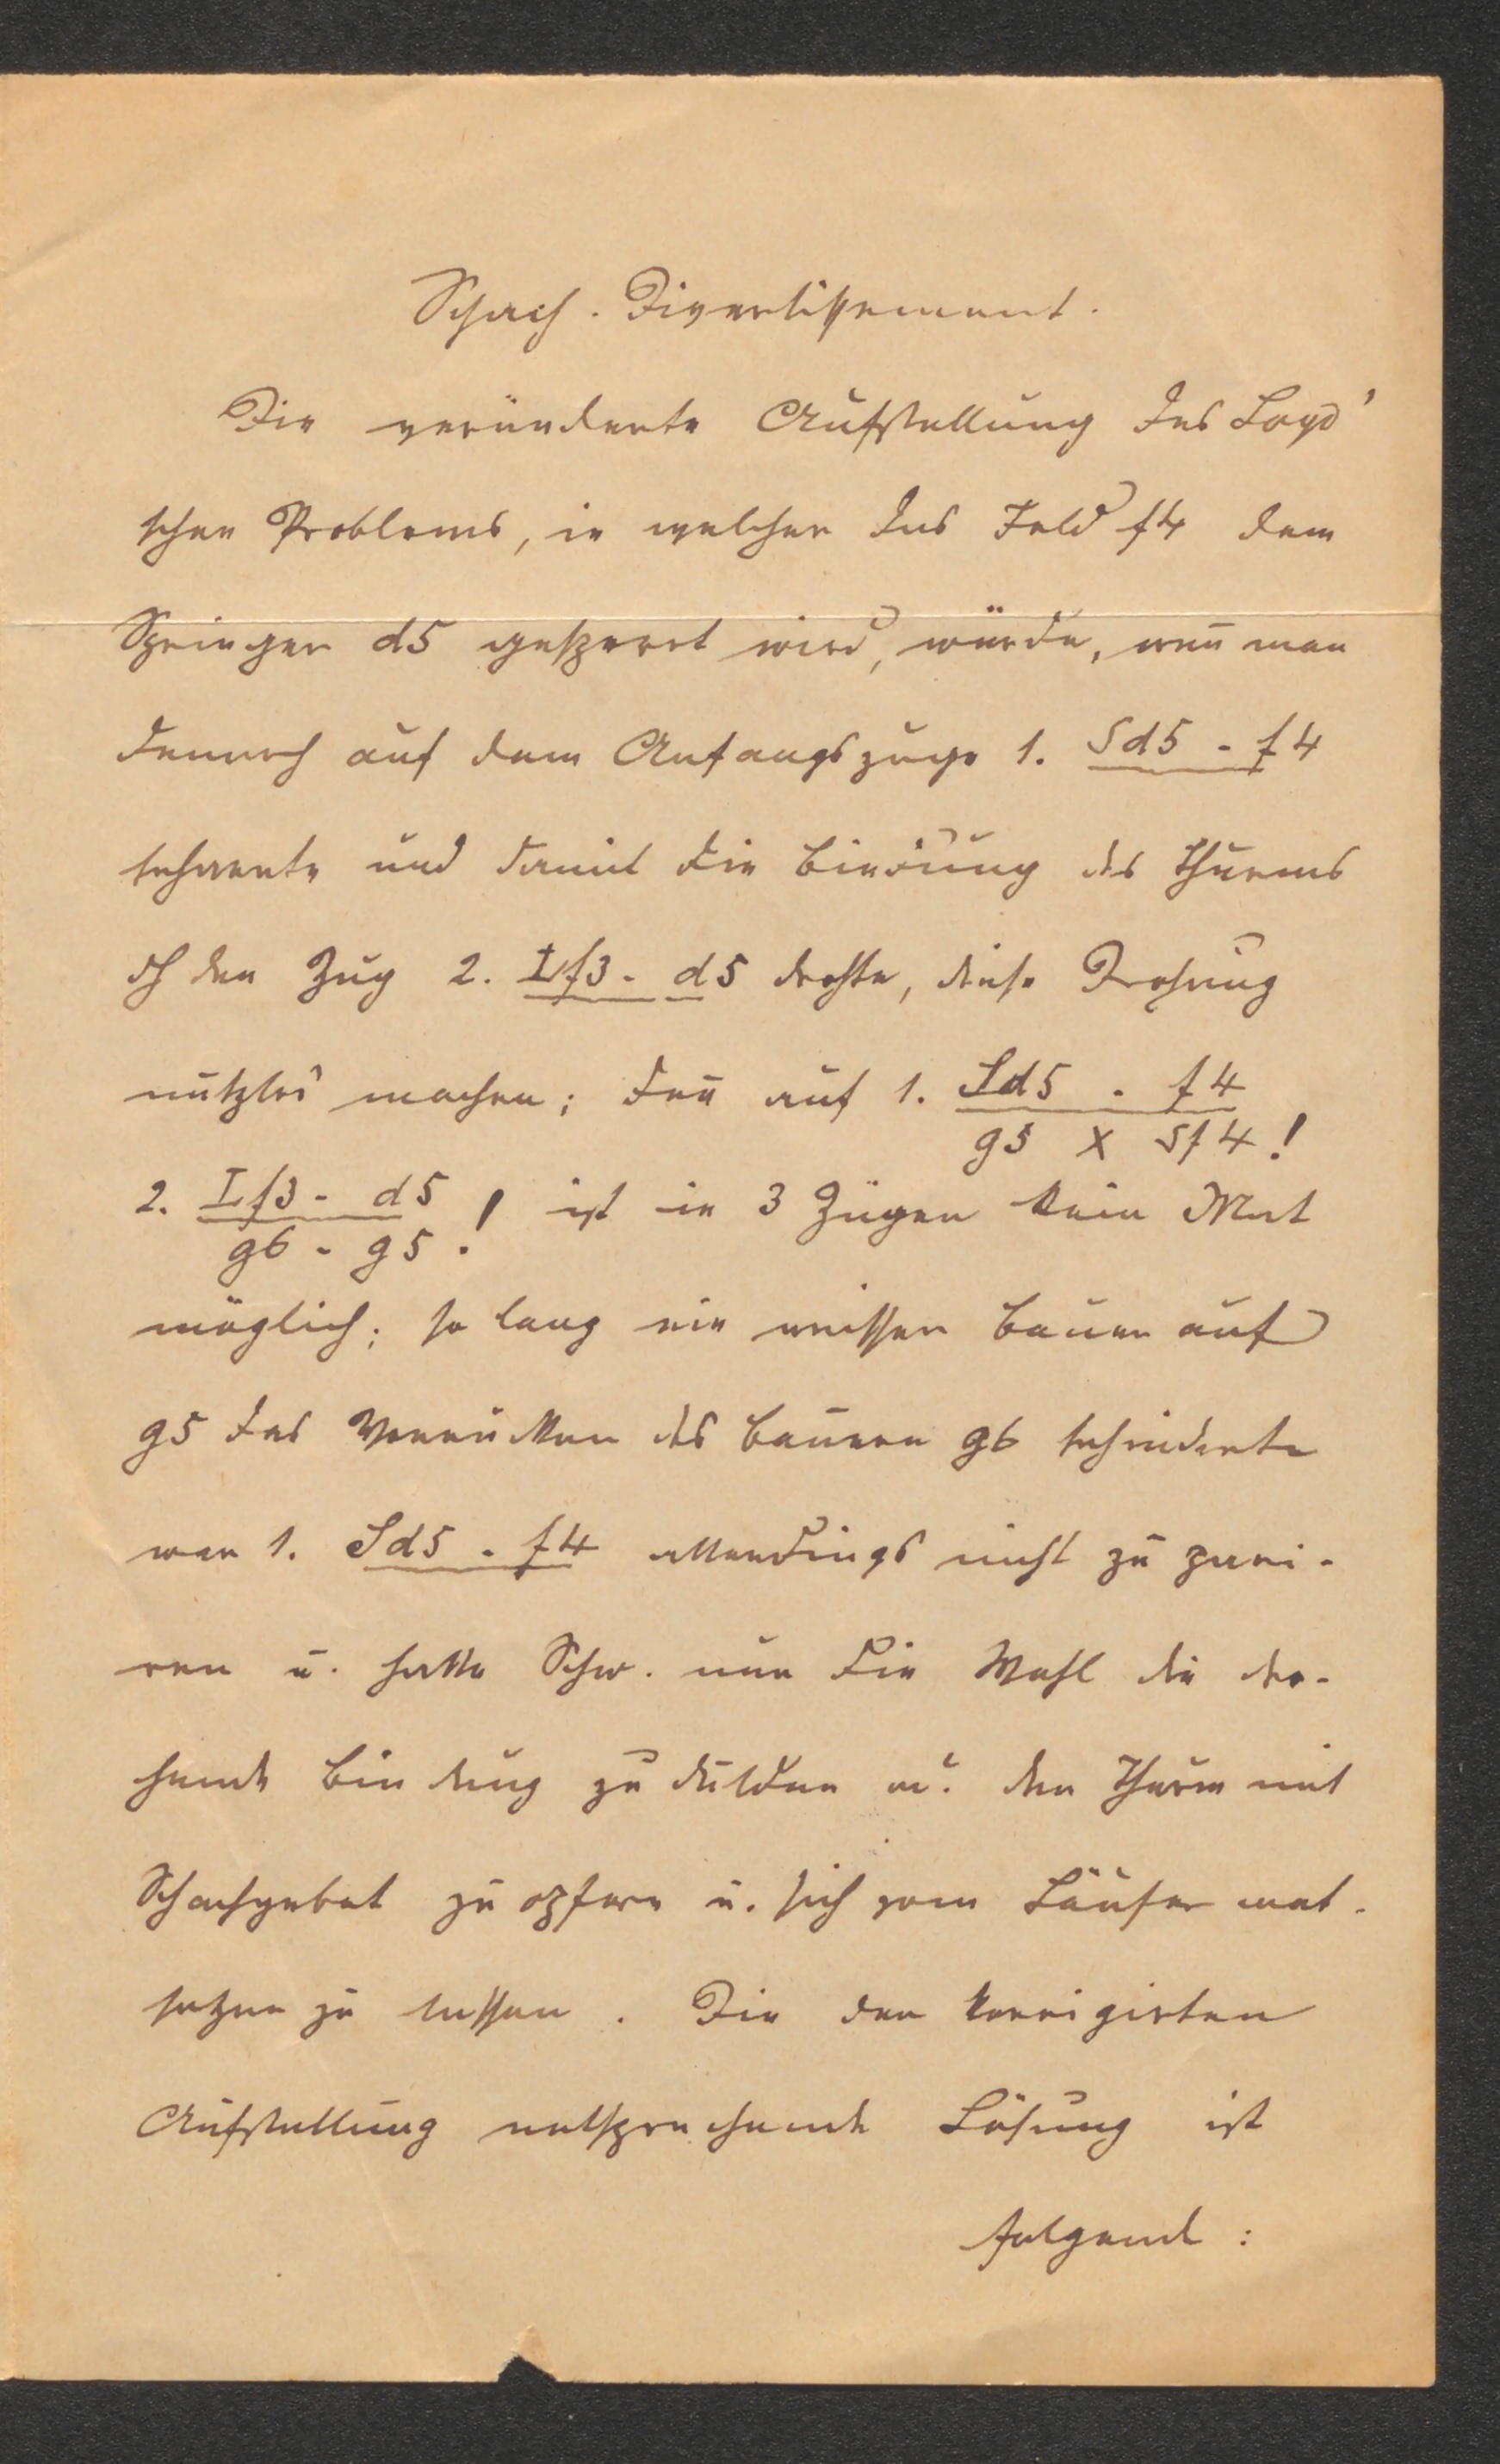 Schach-Divertissement.
Die veränderte Aufstellung des Loyd'
schen Problems, in welcher das Feld f4 dem
Springer d5 gesperrt wird, würde, wen̄ man
dennoch auf dem Anfangszuge 1. Sd5 - f4
beharrte und damit die Bindung des Thurms
dch den Zug 2. Lf3 - d5 drohte, diese Drohung
nutzlos machen; den̄ auf 1. Sd5 - f4
g5 X Sf4!
2. Lf3 - d5 ! ist in 3 Zügen kein Mat
g6 - g5
möglich; so lang ein weisser Bauer auf
g5 das Vorrücken des Bauern g6 behinderte
war 1. Sd5 - f4 allerdings nicht zu pari-
ren u. hatte Schw. nur die Wahl die dro-
hende Bindung zu dulden od. den Thurm mit
Schachgebot zu opfern u. sich vom Läufer mat-
setzen zu lassen. Die der korrigirten
Aufstellung entsprechende Lösung ist
folgende: